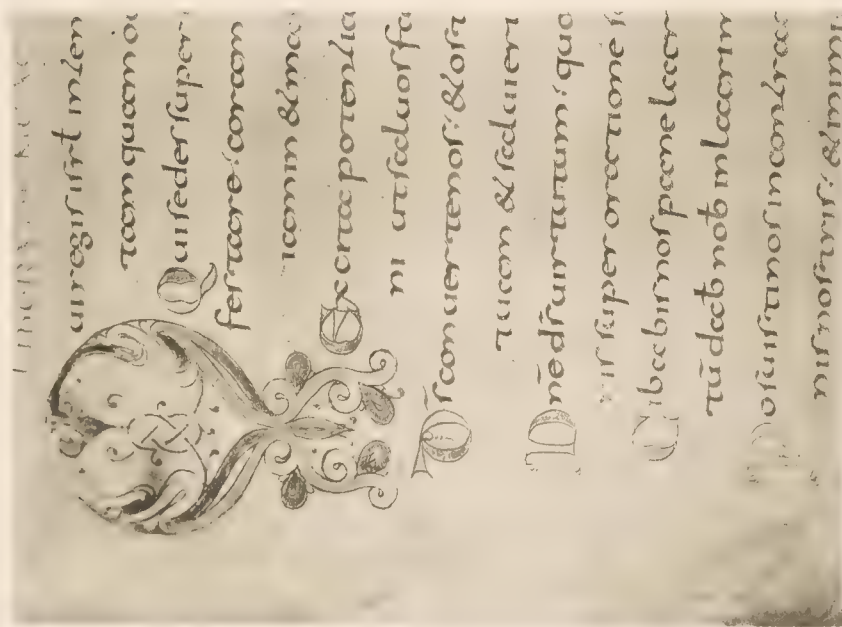 ui regis isrł inten
tamquam o
Qui sedes super
festare: coram
iamin & ma
Excita potentia
ni ut saluos fa
D̄s conuerte nos: & ost
tuam & salui eri
Dn̄e d̄s uirtutum: quo
ris super orationē s
Cibabis nos pane lacr
tū dab nob in lacrim
Posuisti nos in contra
nis nostris: & inimi